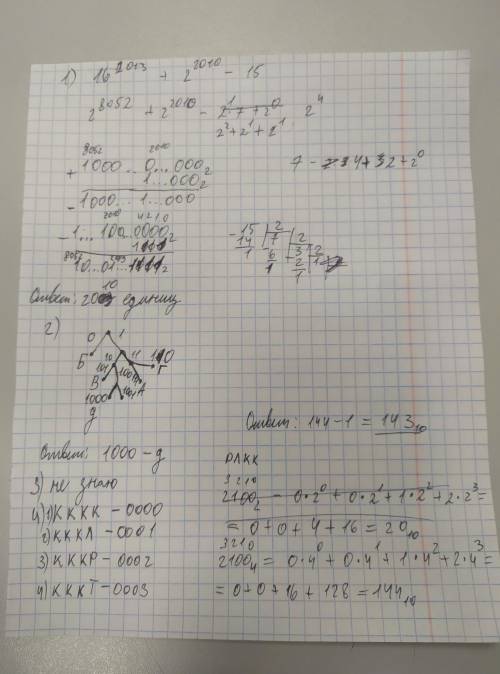 1) 16^2013 + 2^2010 - 15
2^8052 + 2^2010 - 2^4
2^2 + 2^1 + 2^1
8052 2010
+ 1000...0...000₂
1...000₂
- 1000...1...000
2010 4 2 1 0
- 1...100...0000₂
1111
10...01...1111₂
7 - 4 + 2 + 2^0
15 | 2
14 | 7 | 2
1 6 | 3 | 2
1 2 | 1
1
Ответ: 2010 единиц
2)
0 1
10 11 110
Б
В
Г
А
1000 1001
Д
Ответ: 1000 - Д
3) не знаю
4) 1) КККК - 0000
2) КККЛ - 0001
3) КККР - 0002
4) КККТ - 0003
Ответ: 144 - 1 = 143₁₀
РЛКК
3 2 1 0
2100₂ = 0·2^0 + 0·2^1 + 1·2^2 + 2·2^3 =
= 0 + 0 + 4 + 16 = 20₁₀
3 2 1 0
2100₄ = 0·4^0 + 0·4^1 + 1·4^2 + 2·4^3 =
= 0 + 0 + 16 + 128 = 144₁₀